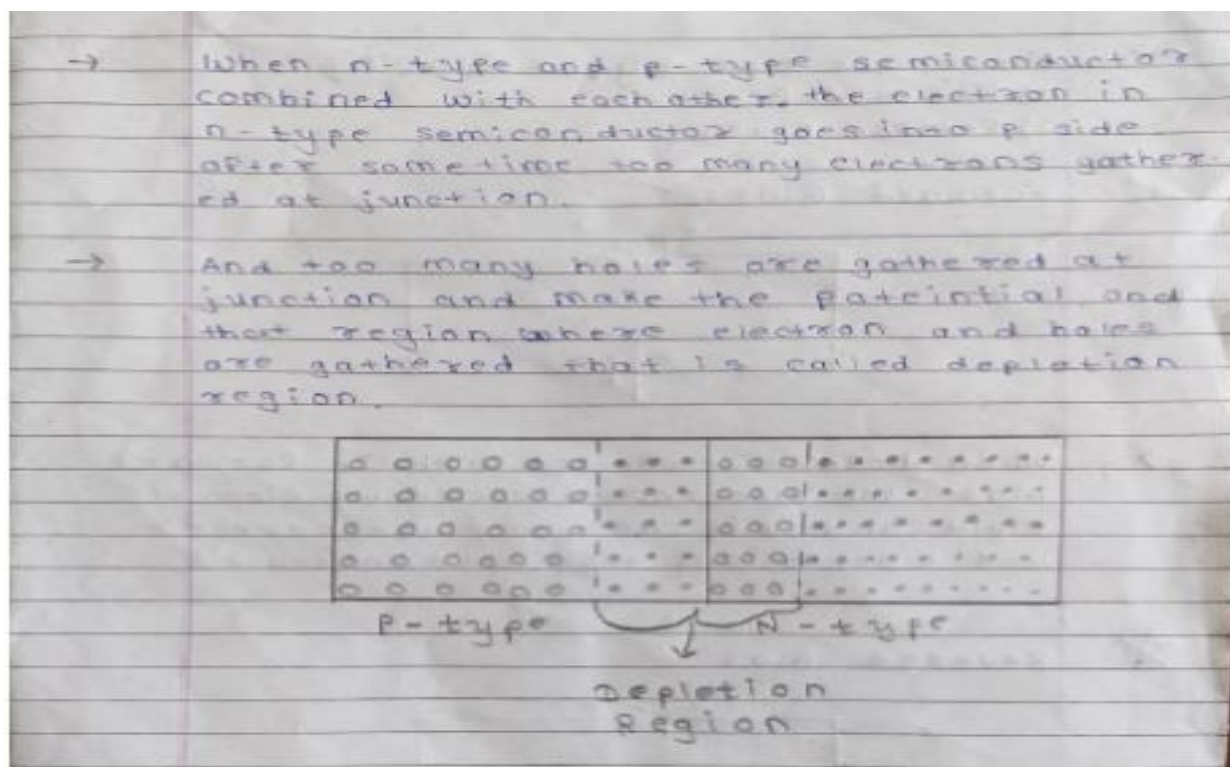 → When n-type and p-type semiconductor
combined with eachother. the electron in
n-type semiconductor goes into p side
after sometime too many electrons gather-
ed at junction.
→ And too many holes are gathered at
junction and make the pateintial and
that region where electron and holes
are gathered that is called depletion
region.
P-type N-type
Depletion
Region